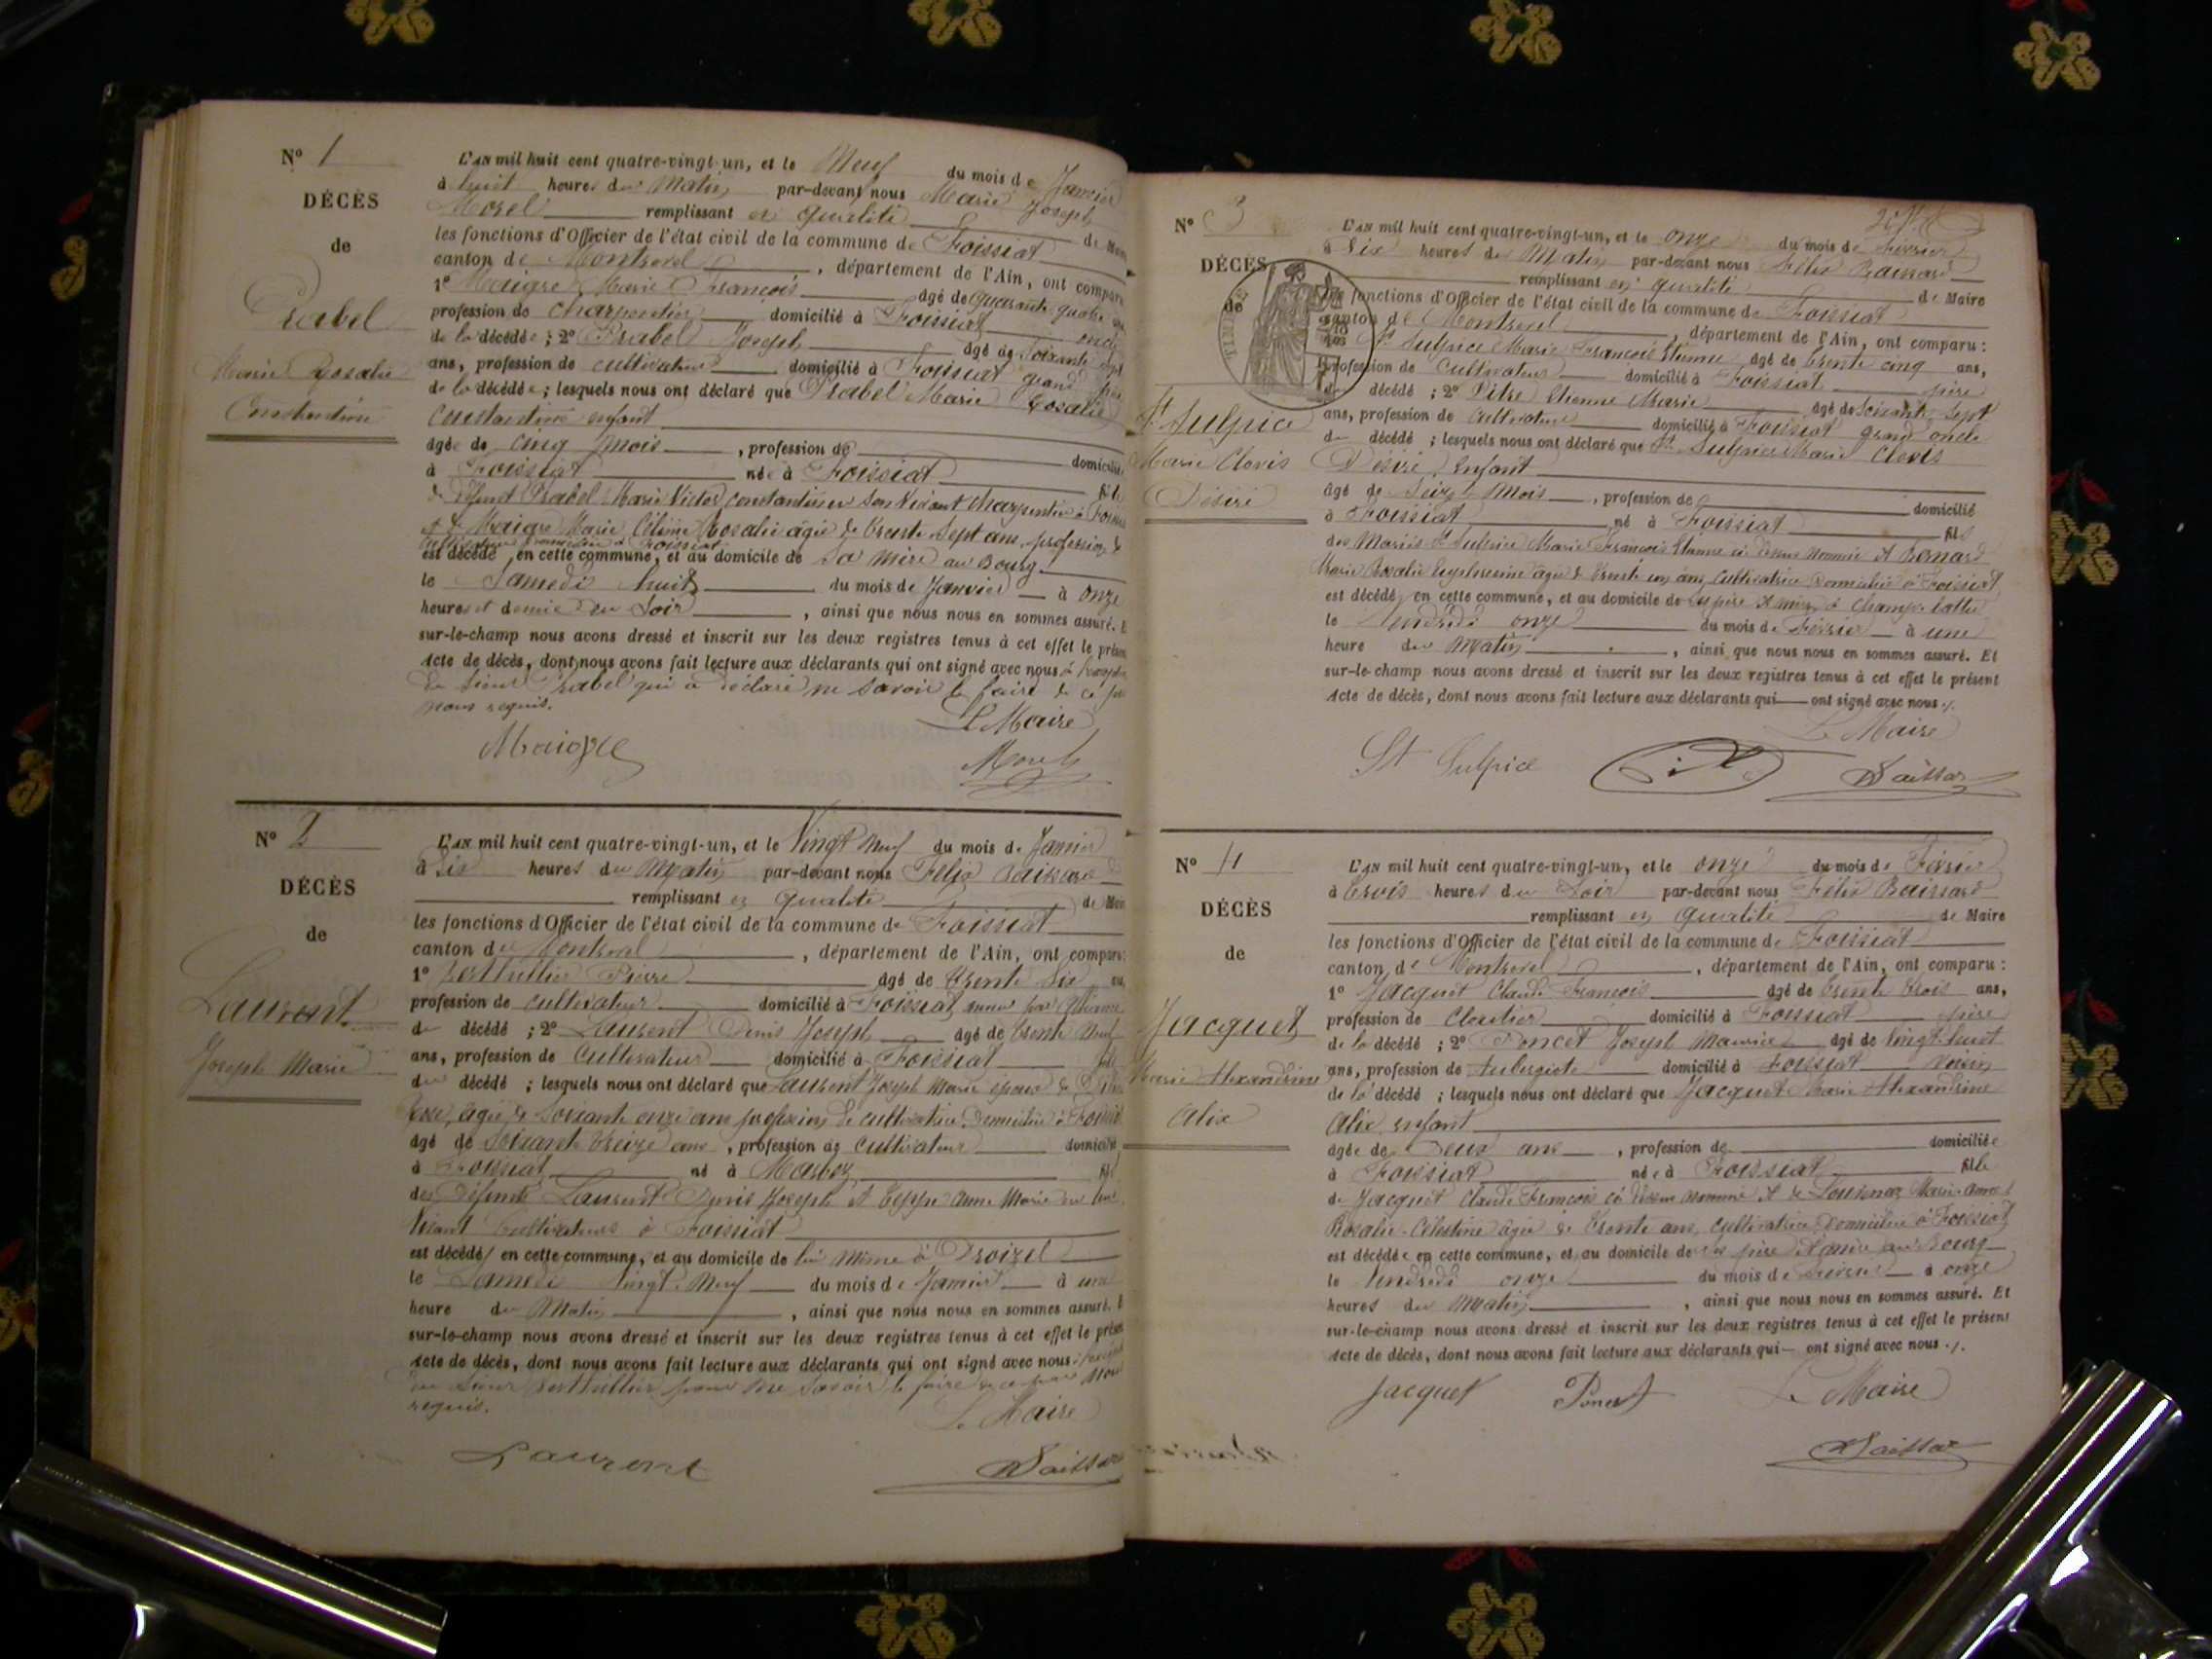 N° 1
DÉCÈS
de
Prabel
Marie Rosalie
Constantine
L'AN mil huit cent quatre-vingt-un, et le Neuf du mois de Janvier
à huit heures du Matin par-devant nous Marie Joseph
Morel remplissant en qualité de
les fonctions d'Officier de l'état civil de la commune de Foissiat
canton de Montrevel, département de l'Ain, ont comparu
1° Maigre Marie François âgé de quarante quatre
profession de charpentier domicilié à Foissiat oncle
de la décédée; 2° Prabel Joseph âgé de soixante sept
ans, profession de cultivateur domicilié à Foissiat grand père
de la décédée; lesquels nous ont déclaré que Prabel Marie Rosalie
Constantine enfant
âgée de cinq mois, profession de domiciliée
à Foissiat née à Foissiat fille
de défunt Prabel Marie Victor Constantin en son vivant charpentier à
et de Maigre Marie Rosalie âgée de trente sept ans, profession de
est décédé en cette commune, et au domicile de sa mère au Bourg
le Samedi huit du mois de Janvier à onze
heures et demie du Soir, ainsi que nous nous en sommes assuré. E
sur-le-champ nous avons dressé et inscrit sur les deux registres tenus à cet effet le présen
Acte de décès, dont nous avons fait lecture aux déclarants qui ont signé avec nous à
du sieur Prabel qui a déclaré ne savoir le faire de ce
nous requis.
Le Maire
Maigre Morel
N° 2
DÉCÈS
de
Laurent
Joseph Marie
L'AN mil huit cent quatre-vingt-un, et le Vingt Neuf du mois de Janvier
à Six heures du Matin par-devant nous Félix Baissard
remplissant en qualité de
les fonctions d'Officier de l'état civil de la commune de Foissiat
canton de Montrevel, département de l'Ain, ont comparu:
1° Berthillier Pierre âgé de trente Six
profession de cultivateur domicilié à Foissiat
du décédé; 2° Laurent Denis Joseph âgé de trente neuf
ans, profession de Cultivateur domicilié à Foissiat fils
du décédé; lesquels nous ont déclaré que Laurent Joseph Marie époux de
âgée de soixante onze ans profession de cultivatrice domiciliée à
âgé de Soixante treize ans, profession de Cultivateur domicilié
à Foissiat né à Marboz fils
des défunts Laurent Denis Joseph et Anne Marie en leur
vivant cultivateurs à Foissiat
est décédé en cette commune, et au domicile de lui même à
le Samedi Vingt-Neuf du mois de Janvier à une
heure du Matin, ainsi que nous nous en sommes assuré. E
sur-le-champ nous avons dressé et inscrit sur les deux registres tenus à cet effet le présen
Acte de décès, dont nous avons fait lecture aux déclarants qui ont signé avec nous
du sieur Berthillier pour ne savoir le faire de ce par nous
requis.
Le Maire
Laurent Baissard
N° 3
DÉCÈS
de
St Sulpice
Marie Clovis
Désiré
L'AN mil huit cent quatre-vingt-un, et le onze du mois de Février
à Six heures du Matin par-devant nous Félix Baissard
remplissant en qualité de Maire
les fonctions d'Officier de l'état civil de la commune de Foissiat
canton de Montrevel, département de l'Ain, ont comparu:
St Sulpice Marie François Etienne âgé de trente cinq ans,
Profession de Cultivateur domicilié à Foissiat père
du décédé; 2° Pitre Etienne Marie âgé de soixante sept
ans, profession de Cultivateur domicilié à Foissiat grand oncle
du décédé; lesquels nous ont déclaré que St Sulpice Marie Clovis
Désiré enfant
âgé de Seize Mois, profession de domicilié
à Foissiat né à Foissiat fils
des Mariés St Sulpice Marie François Etienne ci dessus nommé et
Marie Rosalie âgée de trente un ans, Cultivatrice domiciliée à Foissiat
est décédé en cette commune, et au domicile de ses père et mère à
le Vendredi onze du mois de Février à une
heure du Matin, ainsi que nous nous en sommes assuré. Et
sur-le-champ nous avons dressé et inscrit sur les deux registres tenus à cet effet le présent
Acte de décès, dont nous avons fait lecture aux déclarants qui ont signé avec nous
Le Maire
St Sulpice Baissard
N° 4
DÉCÈS
de
Jacquet
Marie Alexandrine
Alix
L'AN mil huit cent quatre-vingt-un, et le onze du mois de Février
à trois heures du Soir par-devant nous Félix Baissard
remplissant en qualité de Maire
les fonctions d'Officier de l'état civil de la commune de Foissiat
canton de Montrevel, département de l'Ain, ont comparu:
1° Jacquet Claude François âgé de trente trois ans,
profession de Cloutier domicilié à Foissiat père
de la décédé; 2° Poncet Joseph Maurice âgé de Vingt-huit
ans, profession de Aubergiste domicilié à Foissiat voisin
de la décédé; lesquels nous ont déclaré que Jacquet Marie Alexandrine
Alix enfant
âgée de deux ans, profession de domiciliée
à Foissiat née à Foissiat fille
de Jacquet Claude François ci dessus nommé et de
Rosalie-Célestine âgée de trente ans, cultivatrice domiciliée à Foissiat
est décédée en cette commune, et au domicile de ses père et mère au Bourg
le Vendredi onze du mois de Février à onze
heures du Matin, ainsi que nous nous en sommes assuré. Et
sur-le-champ nous avons dressé et inscrit sur les deux registres tenus à cet effet le présent
Acte de décès, dont nous avons fait lecture aux déclarants qui ont signé avec nous
Jacquet Poncet Le Maire
Baissard